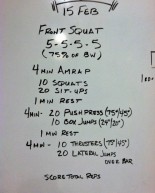 15 FEB
FRONT SQUAT
5-5-5-5
(75% OF BW)
4 MIN AMRAP
10 SQUATS
20 SIT-UPS
1 MIN REST
4 MIN - 20 PUSH PRESS (75/45)
10 BOX JUMPS (24"/20")
1 MIN REST
4 MIN - 10 THRUSTERS (75/45)
20 LATERAL JUMPS
OVER BAR
SCORE TOTAL REPS